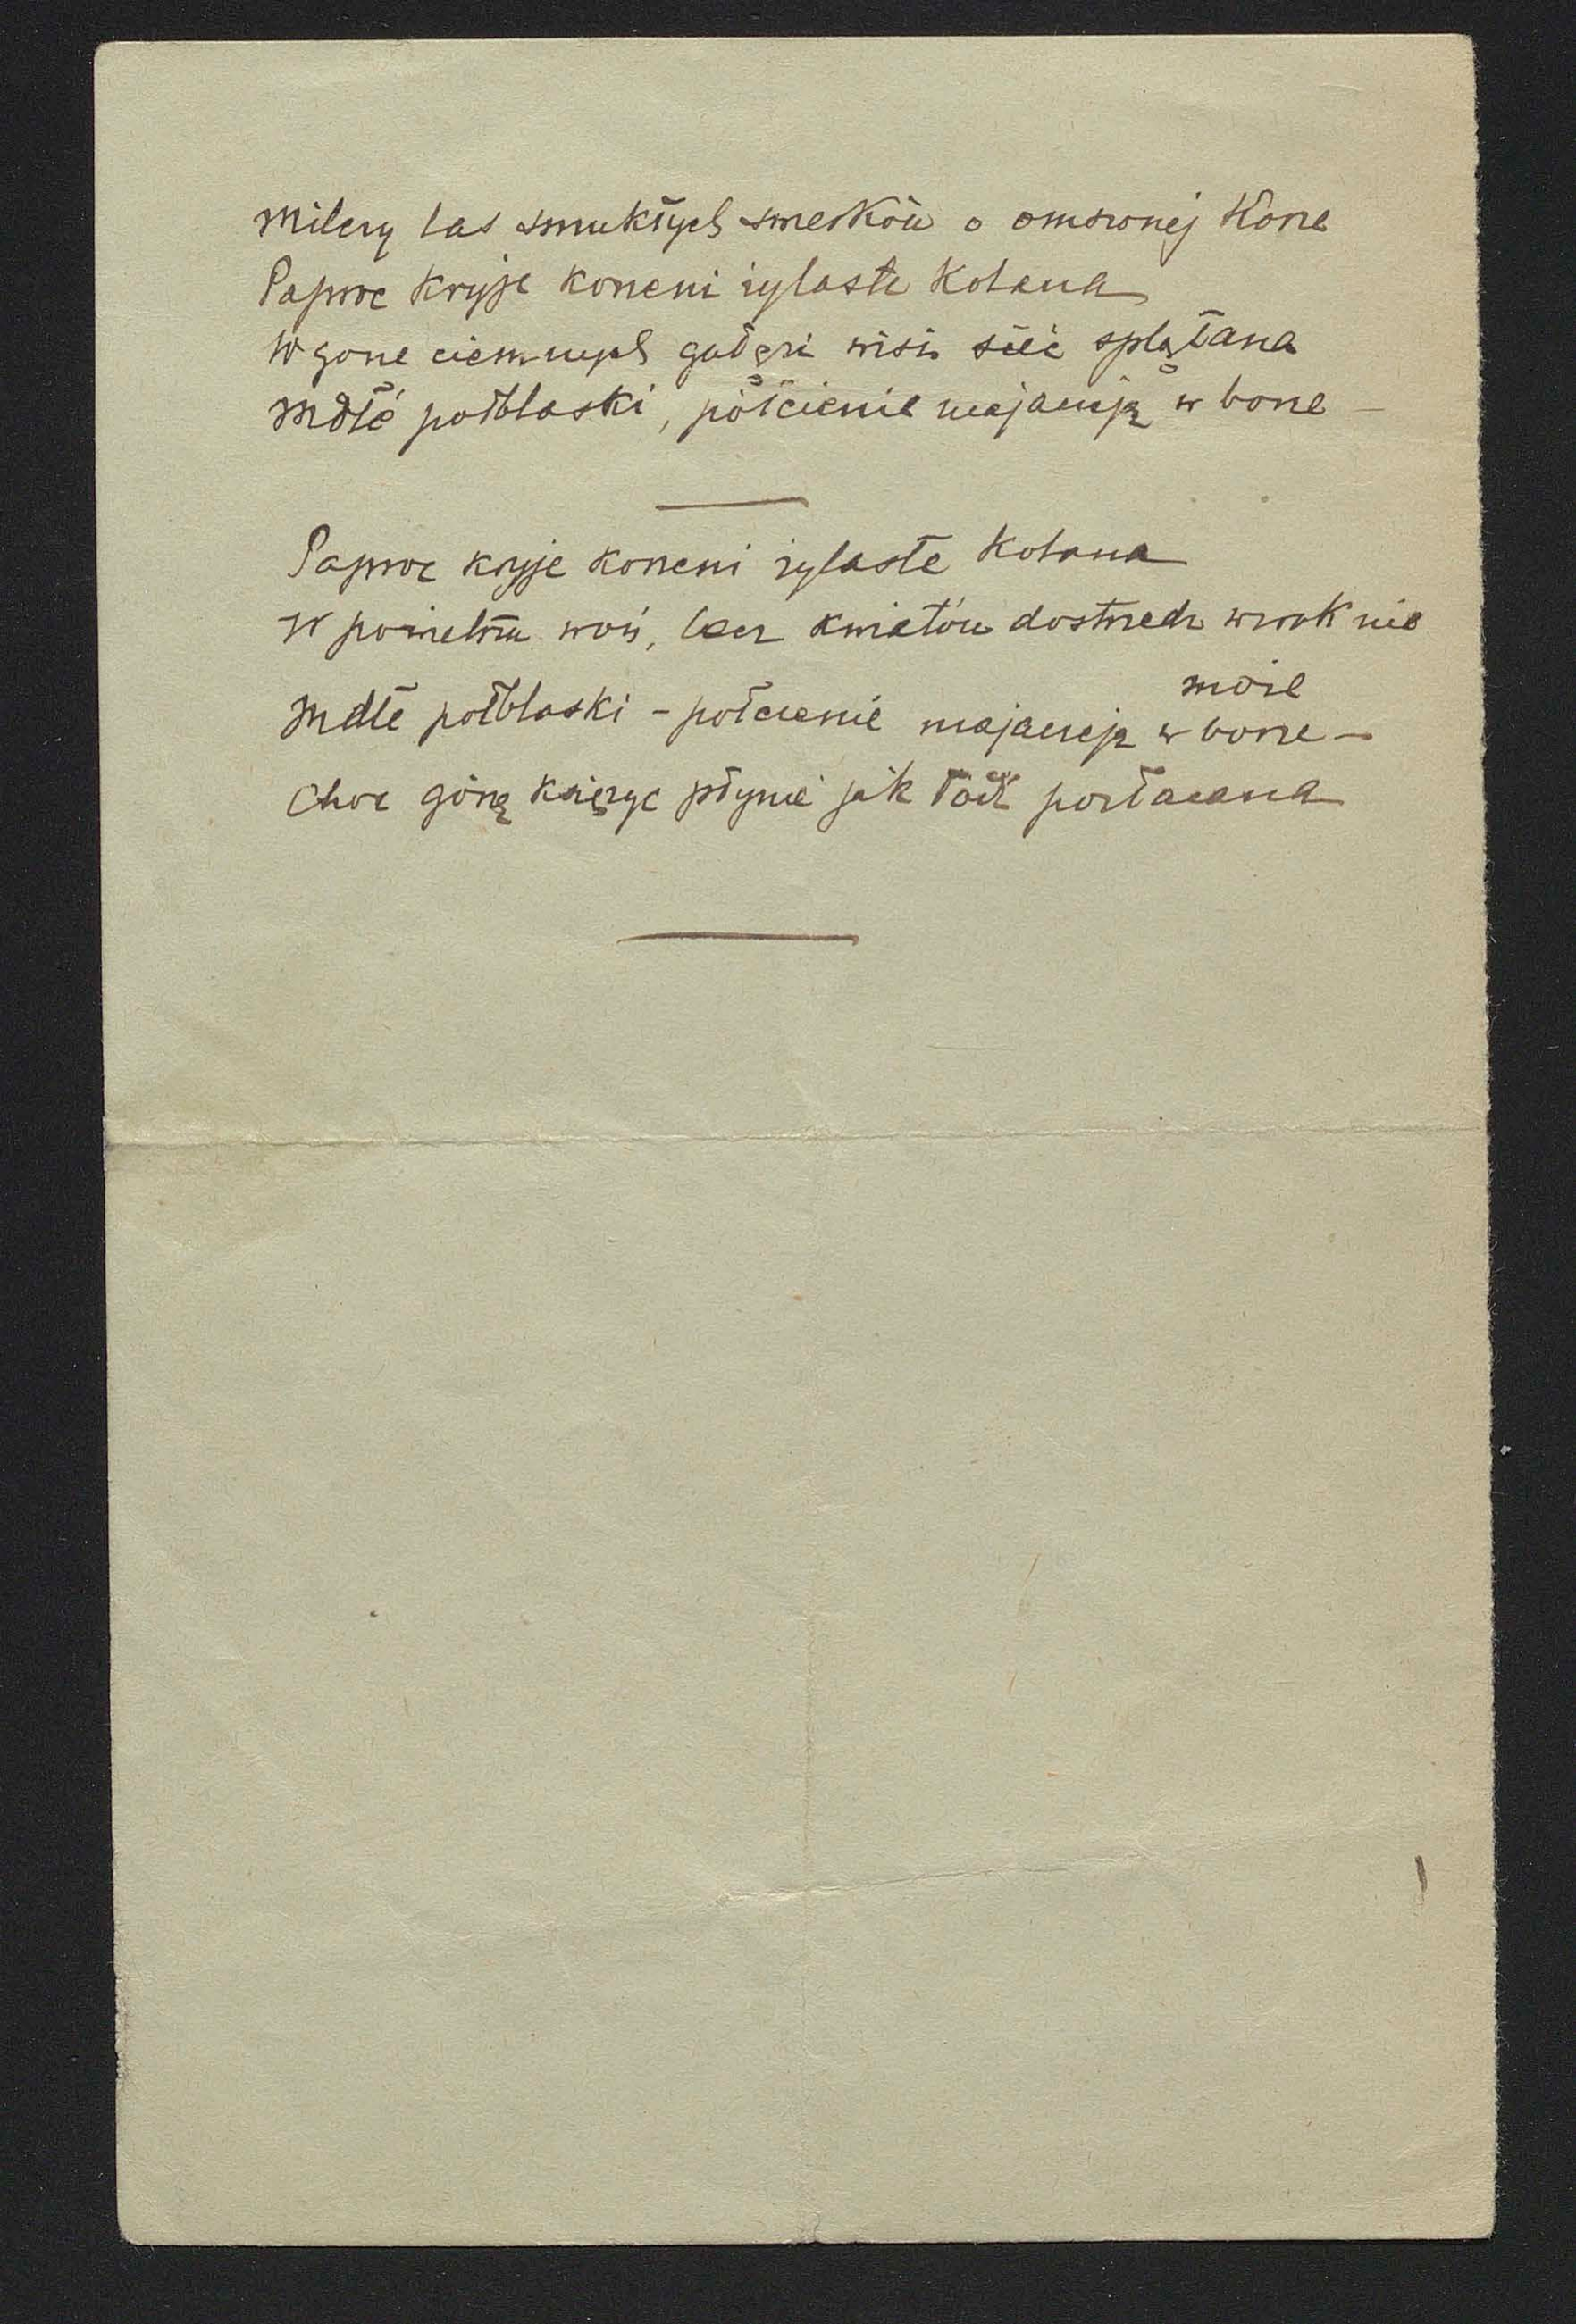 Milczy las smukłych smerków o omszonej korze
Paproć kryje korzeni iglaste kolana
W górze ciemnych gałęzi wisi sieć splątana
Mdłe półblaski, półcienie majaczeją w borze –
Paproć kryje korzeni iglaste kolana
W powietrzu woń, lecz kwiatów dostrzedz wzrok nie
może
Mdłe półblaski – półcienie majaczeją w borze –
Choć górą księżyc płynie jak łódź pozłacana